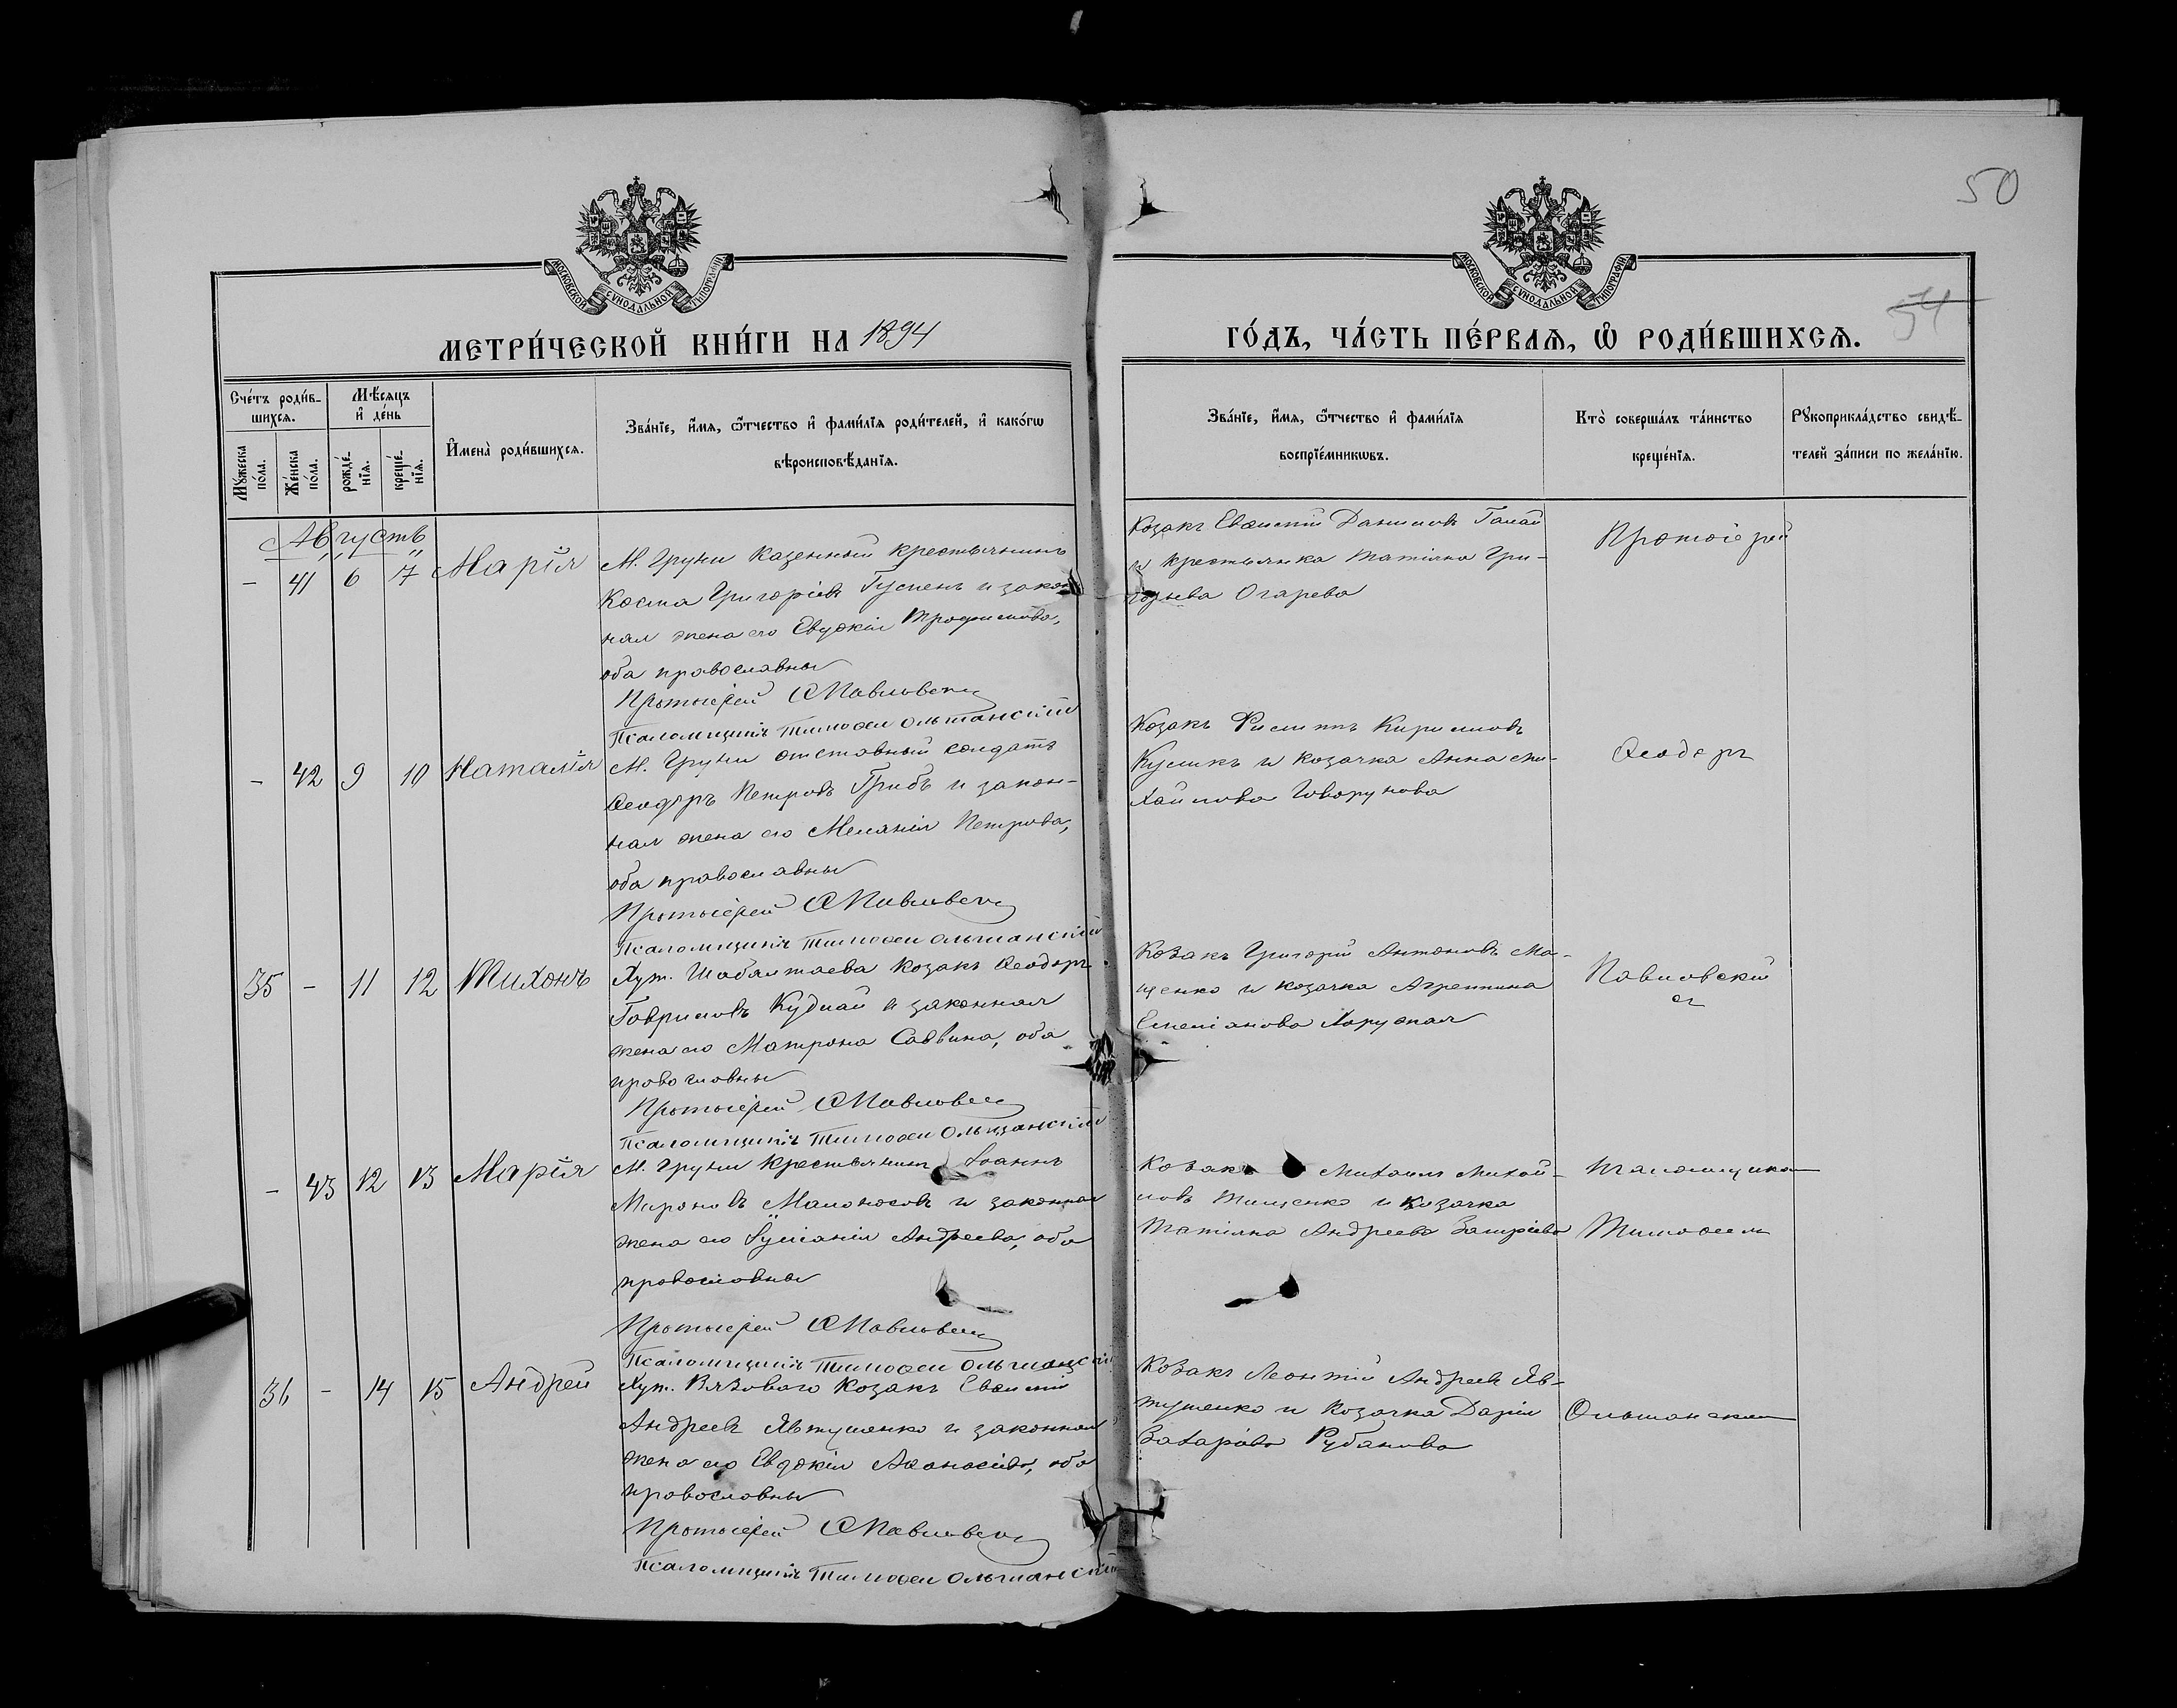 50
54
МОСКОВСКОЙ СѴНОДАЛЬНОЙ ТИПОГРАФІИ
МОСКОВСКОЙ СѴНОДАЛЬНОЙ ТИПОГРАФІИ
МЕТРИ́ЧЕСКОЙ КНИ́ГИ НА 1894
ГО́ДЪ, ЧА́СТЬ ПЕ́РВАѦ, Ѽ РОДИ́ВШИХСѦ.
Сче́тъ роди́в-
шихсѧ.
Му́жеска по́ла.
Же́нска по́ла.
Мѣ́сѧцъ
и҆ де́нь
рожде́-нїѧ.
креще́-нїѧ.
И҆мена̀ роди́вшихсѧ.
Зва́нїе, и҆́мѧ, ѻ҆́тчество и҆ фами́лїѧ роди́телей, и҆ како́гѡ
вѣроисповѣ́данїѧ.
Зва́нїе, и҆́мѧ, ѻ҆́тчество и҆ фами́лїѧ
воспрїе́мникѡвъ.
Кто̀ соверша́лъ та́инство
креще́нїѧ.
Рꙋкоприкла́дство свидѣ́-
телей за́писи по жела́нїю.
Августъ
– 41 6 7 Марія
М. Груни казенный крестьянинъ
Косма Григоріевъ и закон-
ная жена его Евдокія Трофимова,
оба православны
Протоіерей Ѳ Павловскій
Псаломщикъ Тимоѳей Ольшанскій
Козакъ Евѳимій Даниловъ Галай
и крестьянка Татіана Гри-
горьева Огарева
Протоіерей
– 42 9 10 Наталія
М. Груни отставный солдатъ
Ѳеодоръ Петровъ Грибъ и закон-
ная жена его Меланія Петрова,
оба православны
Протоіерей Ѳ Павловскій
Псаломщикъ Тимоѳей Ольшанскій
Козакъ Филиппъ Кириловъ
Куликъ и козачка Анна Ми-
хайлова Говорунова
Ѳеодоръ
35 – 11 12 Тихонъ
Хут. Шабалтаева козакъ Ѳеодоръ
Гавриловъ Кудлай и законная
жена его Матрона Саввина, оба
православны
Протоіерей Ѳ Павловскій
Псаломщикъ Тимоѳей Ольшанскій
Козакъ Григорій Антоновъ Ма-
щенко и козачка Агрепина
Стефанова
Павловскій
съ
– 43 12 13 Марія
М. Груни крестьянинъ Іоаннъ
Мироновъ Малоносовъ и законная
жена его Іуліанія Андреева, оба
православны
Протоіерей Ѳ Павловскій
Псаломщикъ Тимоѳей Ольшанскій
Козакъ Михаилъ Михай-
ловъ Тищенко и козачка
Татіана Андреева
псаломщикомъ
Тимоѳеемъ
36 – 14 15 Андрей
Хут. Вязоваго козакъ Евѳимій
Андреевъ Явтушенко и законная
жена его Евдокія Аѳанасіева, оба
православны
Протоіерей Ѳ Павловскій
Псаломщикъ Тимоѳей Ольшанскій
Козакъ Леонтій Андреевъ Яв-
тушенко и козачка Дарія
Захаріева Рубанова
Ольшанскимъ